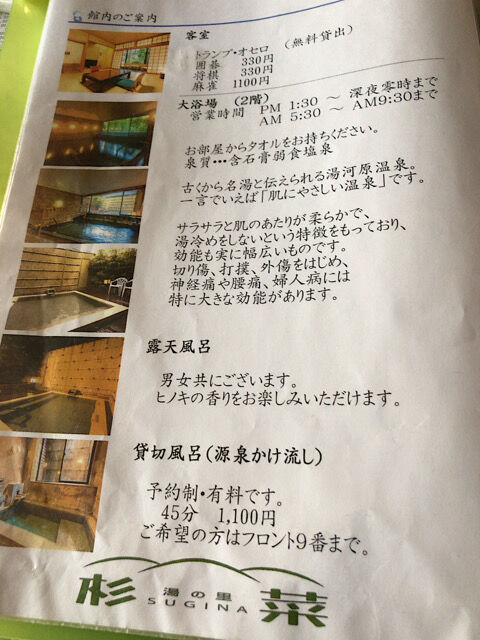 館内のご案内
客室
トランプ・オセロ (無料貸出)
囲碁 330円
将棋 330円
麻雀 1100円
大浴場 (2階)
営業時間 PM 1:30 ～ 深夜零時まで
AM 5:30 ～ AM9:30まで
お部屋からタオルをお持ちください。
泉質・・・含石膏弱食塩泉
古くから名湯と伝えられる湯河原温泉。
一言でいえば「肌にやさしい温泉」です。
サラサラと肌のあたりが柔らかで、
湯冷めをしないという特徴をもっており、
効能も実に幅広いものです。
切り傷、打撲、外傷をはじめ、
神経痛や腰痛、婦人病には
特に大きな効能があります。
露天風呂
男女共にございます。
ヒノキの香りをお楽しみいただけます。
貸切風呂(源泉かけ流し)
予約制・有料です。
45分 1,100円
ご希望の方はフロント9番まで。
杉菜
湯の里
SUGINA